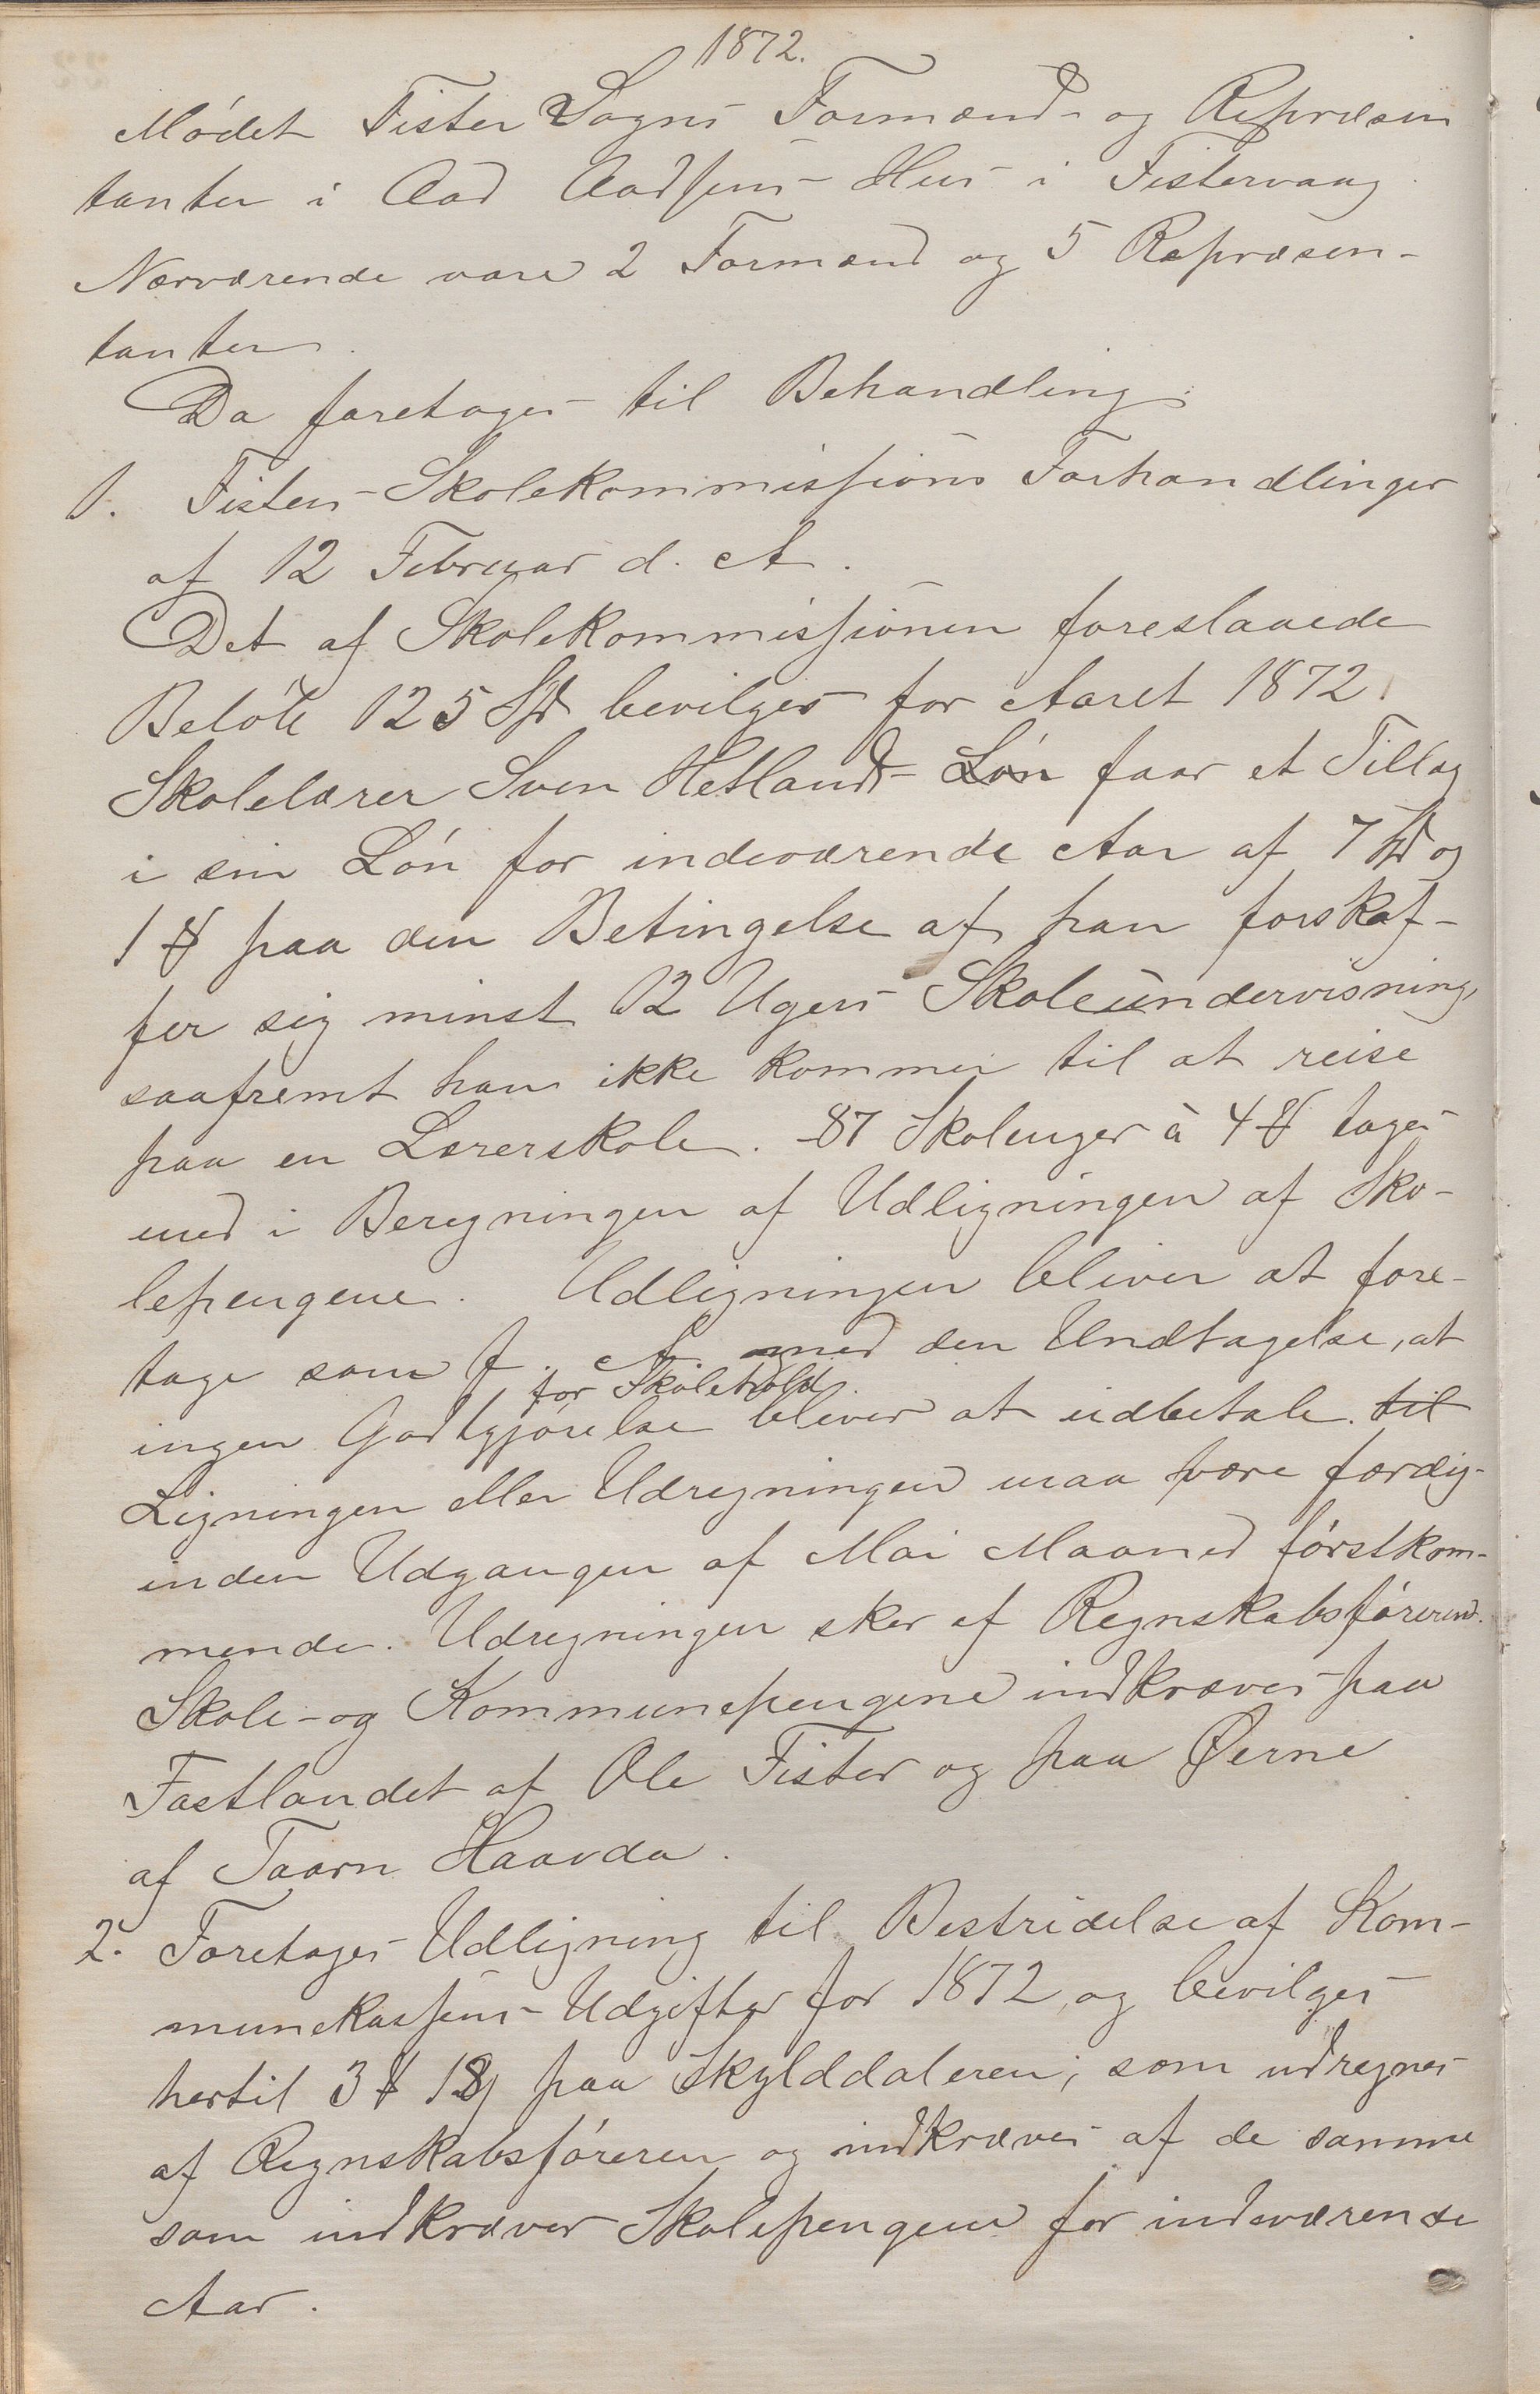 1872.
Mödet Fister Sogns Formænd- og Repræsen
tanter i Aad Aadsens Hus i Fistervaag
Nærværende vare 2 Formænd og 5 Repræsen-
tanter.
Da foretages til Behandling:
1. Fisters Skolekommissions Forhandlinger
af 12 Februar d. A.
Det af Skolekommissionen foreslaaede
Belöb 125 Spd bevilges for Aaret 1872.
Skolelærer Sven Hetlands Lön faar et Tillæg
i sin Lön for indeværende Aar af 7 Spd og
1 ₰ paa den Betingelse af han forskaf-
fer sig minst 12 Ugers Skoleundervisning,
saafremt han ikke kommer til at reise
paa en Lærerskole. 87 Skoleuger à 4 ₰ tages
med i Beregningen af Udligningen af Sko-
lepengene. Udligningen bliver at fore-
tage som f. A. med den Undtagelse, at
for Skolehold
ingen Godtgjörelse bliver at udbetale. til
Ligningen eller Udregningen maa være færdig
inden Udgangen af Mai Maaned förstkom-
mende. Udregningen sker af Regnskabsföreren.
Skole- og Kommunepengene indkræves paa
Fastlandet af Ole Fister og paa Øerne
af Taarn Haavda.
2. Foretages Udligning til Bestridelse af Kom-
munekassens Udgifter for 1872, og bevilges
hertil 3 ₰ 18 paa Skylddaleren; som udregnes
af Regnskabsföreren og indkræves af de samme
som indkræver Skolepengene for indeværende
Aar.